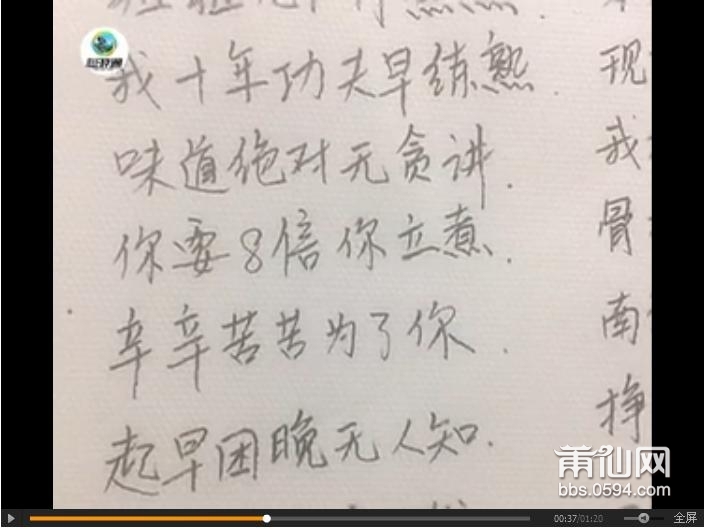 我十年功夫早练熟.
味道绝对无贪讲.
你要8倍你立煮.
辛辛苦苦为了你.
起早困晚无人知.
现
我
骨
南
挣
莆仙网
bbs.0594.com
00:37/01:20
全屏